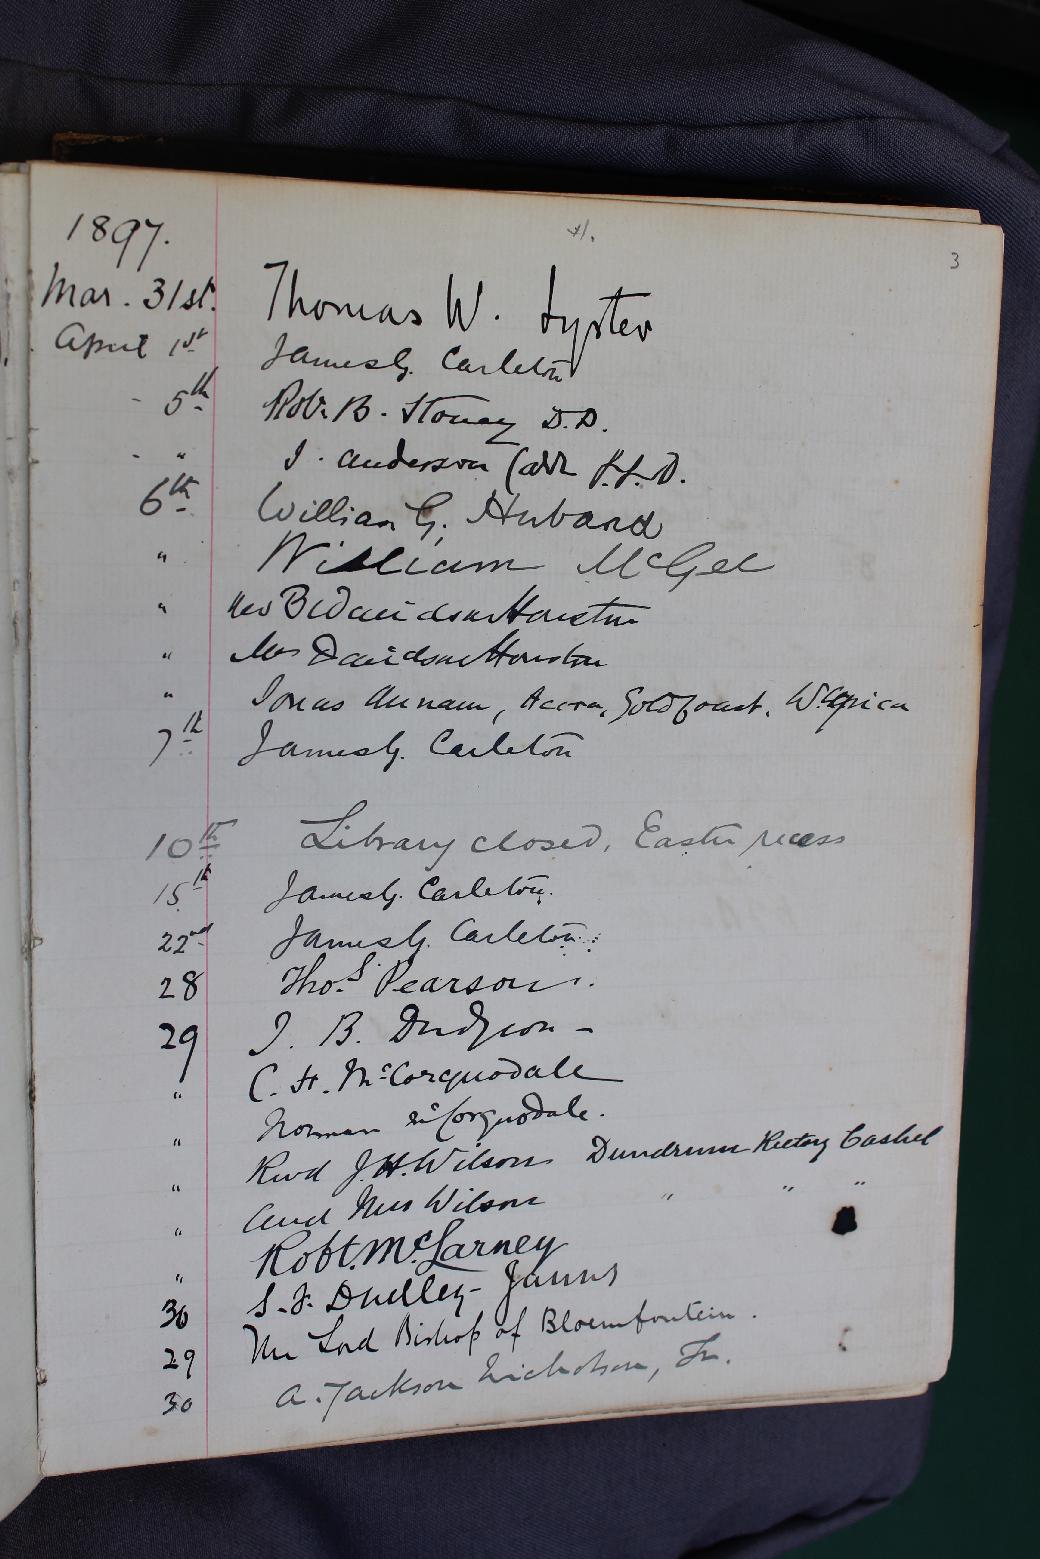 1897.
3
Mar. 31st. Thomas W. Lyster
April 1st James G. Carleton
- 5th Robt. B. Stoney D.D.
- " J. Anderson LL.D.
6th William G. Huband
" William McGee
" Rev B C Davidson Houston
" Mrs Davidson Houston
" Jonas Aunam, Accra, Gold Coast, W. Africa
7th James G. Carleton
10th Library closed, Easter recess
15th James G. Carleton.
22nd James G. Carleton.
28 Thos Pearson.
29 J. B. Dudgeon -
" C. H. McCorquodale
" Norman McCorquodale.
" Revd J. H. Wilson Dundrum Rectory Cashel
" and Mrs Wilson " " "
" Robt. McLarney
30 S. F. Dudley-Janns
29 The Lord Bishop of Bloemfontein.
30 A. Jackson Nicholson, Jr.